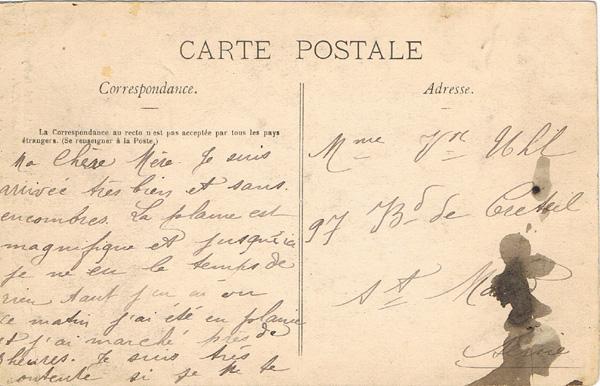 CARTE POSTALE
Correspondance.
Adresse.
La Correspondance au recto n'est pas acceptée par tous les pays
étrangers. (Se renseigner à la Poste.)
Ma Chère Mère Je suis
arrivée très bien et sans
encombres. La plaine est
magnifique et jusqu'ici
je ne eu le temps de
rien tant j'en ai vu
ce matin j'ai été en plaine
et j'ai marché près de
heures. Je suis très
contente si je te
Mme Vve Uhl
97 Bd de Creteil
St Maur
Seine